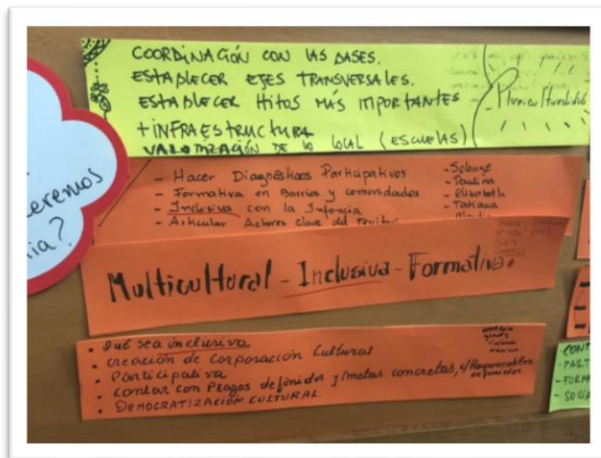 COORDINACIÓN CON LAS BASES.
ESTABLECER EJES TRANSVERSALES.
ESTABLECER HITOS MÁS IMPORTANTES
+ INFRAESTRUCTURA
VALORIZACIÓN DE LO LOCAL (ESCUELAS)
- Hacer Diagnósticos Participativos
- Formativa en Barrios y comunidades
- Inclusiva con la Infancia
- Articular Actores clave del
- Solange
- Paulina
- Elizabeth
- Tatiana
Multicultural - Inclusiva - Formativa.
• Qué sea inclusiva
• creación de Corporación Cultural
• Participativa
• Contar con Plazos definidos y metas concretas, c/Responsables
definidos
• DEMOCRATIZACIÓN CULTURAL.
eremos
ia?
CONT
- PART
- FORM
- SOCI